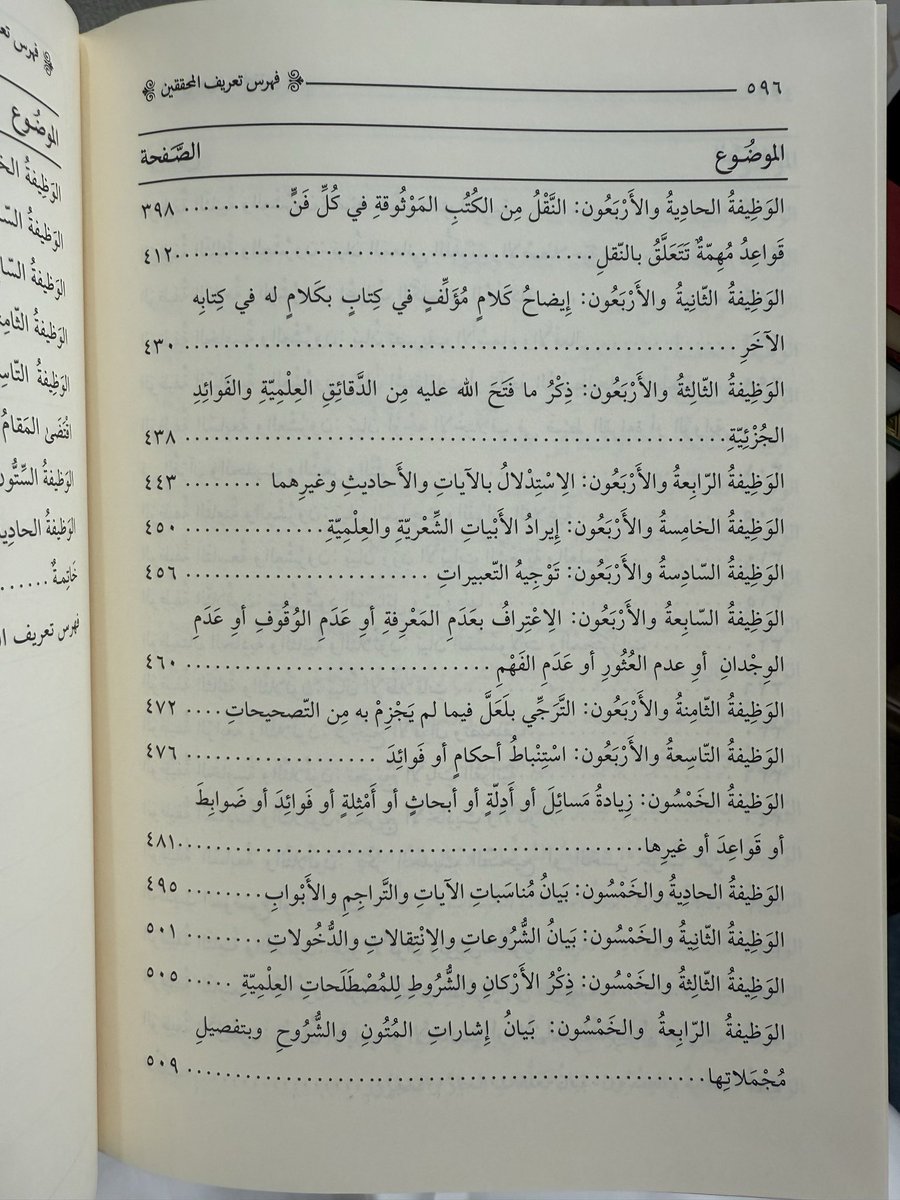 ٥٩٦ فهرس تعريف المحققين
الموضُوع الصَّفحة
الوَظِيفةُ الحاديةُ والأَرْبَعُون: النَّقْلُ مِن الكُتُبِ المَوْثُوقةِ في كُلِّ فَنٍّ .......... ٣٩٨
قَواعِدُ مُهِمّةٌ تَتَعَلَّقُ بالنّقلِ........................................ ٤١٢
الوَظِيفةُ الثّانيةُ والأَرْبَعُون: إيضاحُ كَلامِ مُؤَلِّفٍ في كِتابٍ بكَلامٍ له في كِتابِه
الآخَرِ ........................................ ٤٣٠
الوَظِيفةُ الثّالثةُ والأَرْبَعُون: ذِكْرُ ما فَتَحَ الله عليه مِن الدَّقائِقِ العِلْمِيّةِ والفَوائِدِ
الجُزْئِيّةِ ........................................ ٤٣٨
الوَظِيفةُ الرّابِعةُ والأَرْبَعُون: الاِسْتِدْلالُ بالآياتِ والأَحاديثِ وغيرِهما ........ ٤٤٣
الوَظِيفةُ الخامِسةُ والأَرْبَعُون: إيرادُ الأَبْياتِ الشِّعْريّةِ والعِلْمِيّةِ .............. ٤٥٠
الوَظِيفةُ السّادِسةُ والأَرْبَعُون: تَوْجِيهُ التّعبيراتِ ........................ ٤٥٦
الوَظِيفةُ السّابِعةُ والأَرْبَعُون: الاِعْتِرافُ بعَدَمِ المَعْرِفةِ أوِ عَدَمِ الوُقُوفِ أوِ عَدَمِ
الوِجْدانِ أوِ عدم العُثُورِ أو عَدَمِ الفَهْمِ ............................. ٤٦٠
الوَظِيفةُ الثّامِنةُ والأَرْبَعُون: التَّرَجِّي بلَعَلَّ فيما لم يَجْزِمْ به مِن التّصحيحاتِ .... ٤٧٢
الوَظِيفةُ التّاسِعةُ والأَرْبَعُون: اسْتِنْباطُ أحكامٍ أو فَوائِدَ .................. ٤٧٦
الوَظِيفةُ الخَمْسُون: زِيادةُ مَسائِلَ أو أَدِلّةٍ أو أبحاثٍ أو أَمْثِلةٍ أو فَوائِدَ أو ضَوابِطَ
أو قَواعِدَ أو غيرِها........................................ ٤٨١
الوَظِيفةُ الحادِيةُ والخَمْسُون: بَيانُ مُناسَباتِ الآياتِ والتَّراجِمِ والأَبْوابِ ........ ٤٩٥
الوَظِيفةُ الثّانِيةُ والخَمْسُون: بَيانُ الشُّرُوعاتِ والاِنْتِقالاتِ والدُّخُولاتِ ........ ٥٠١
الوَظِيفةُ الثّالِثةُ والخَمْسُون: ذِكْرُ الأَرْكانِ والشُّرُوطِ لِلمُصْطَلَحاتِ العِلْمِيّةِ ..... ٥٠٥
الوَظِيفةُ الرّابِعةُ والخَمْسُون: بَيانُ إشاراتِ المُتُونِ والشُّرُوحِ وبتفصيلِ
مُجْمَلاتِها........................................ ٥٠٩
الموضُوع
اقْتَضَىٰ المَقامُ
الوَظِيفةُ السِّتُّون
خَاتِمةٌ ......
فهرس تعريف